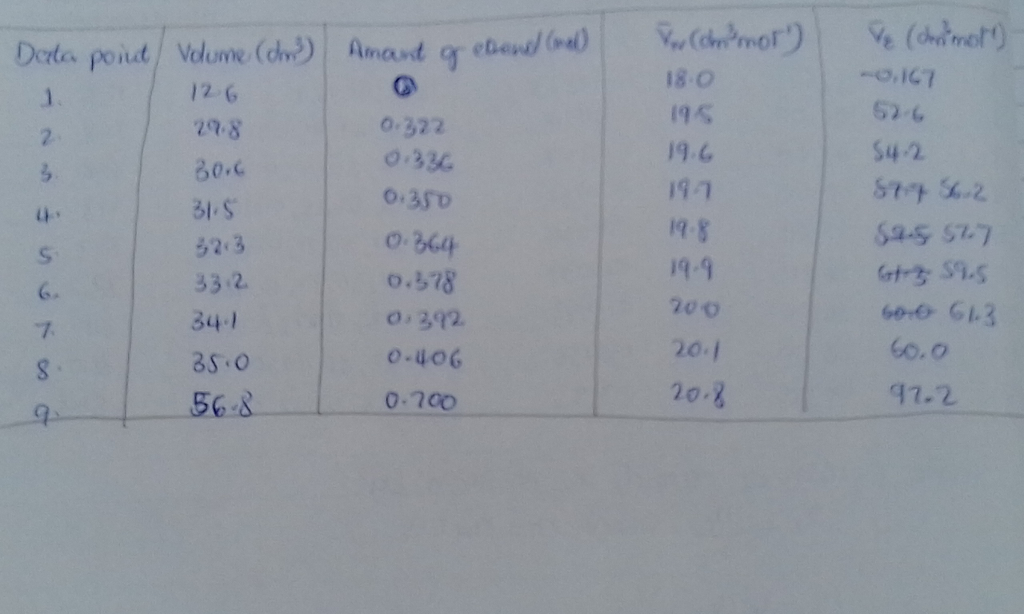 Data point Volume (dm³) Amount of ethanol (mol) V̄w (dm³mol⁻¹) V̄E (dm³mol⁻¹)
1. 12.6 0 18.0 -0.167
2. 29.8 0.322 19.5 52.6
3. 30.6 0.336 19.6 54.2
4. 31.5 0.350 19.7 56.2
5 32.3 0.364 19.8 57.7
6. 33.2 0.378 19.9 59.5
7. 34.1 0.392 20.0 61.3
8. 35.0 0.406 20.1 60.0
9. 56.8 0.700 20.8 97.2